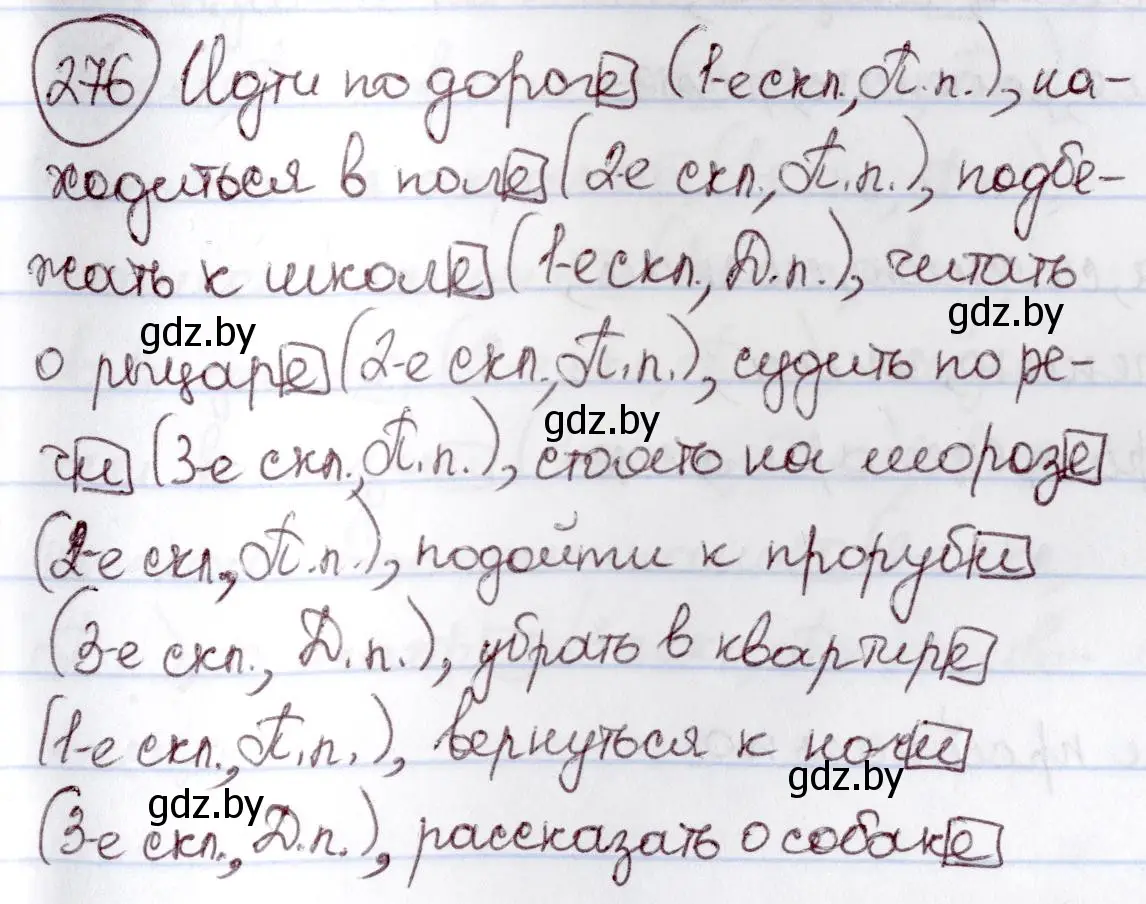 276 Идти по дороге (1-е скл., П.п.), на-
ходиться в поле (2-е скл., П.п.), подбе-
жать к школе (1-е скл., Д.п.), читать
gdz.by
gdz.by
о рыцаре (2-е скл., П.п.), судить по ре-
gdz.by
чи (3-е скл., П.п.), стоять на морозе
(2-е скл., П.п.), подойти к проруби
(3-е скл., Д.п.), убрать в квартире
(1-е скл., П.п.), вернуться к ночи
gdz.by
gdz.by
(3-е скл., Д.п.), рассказать о собаке